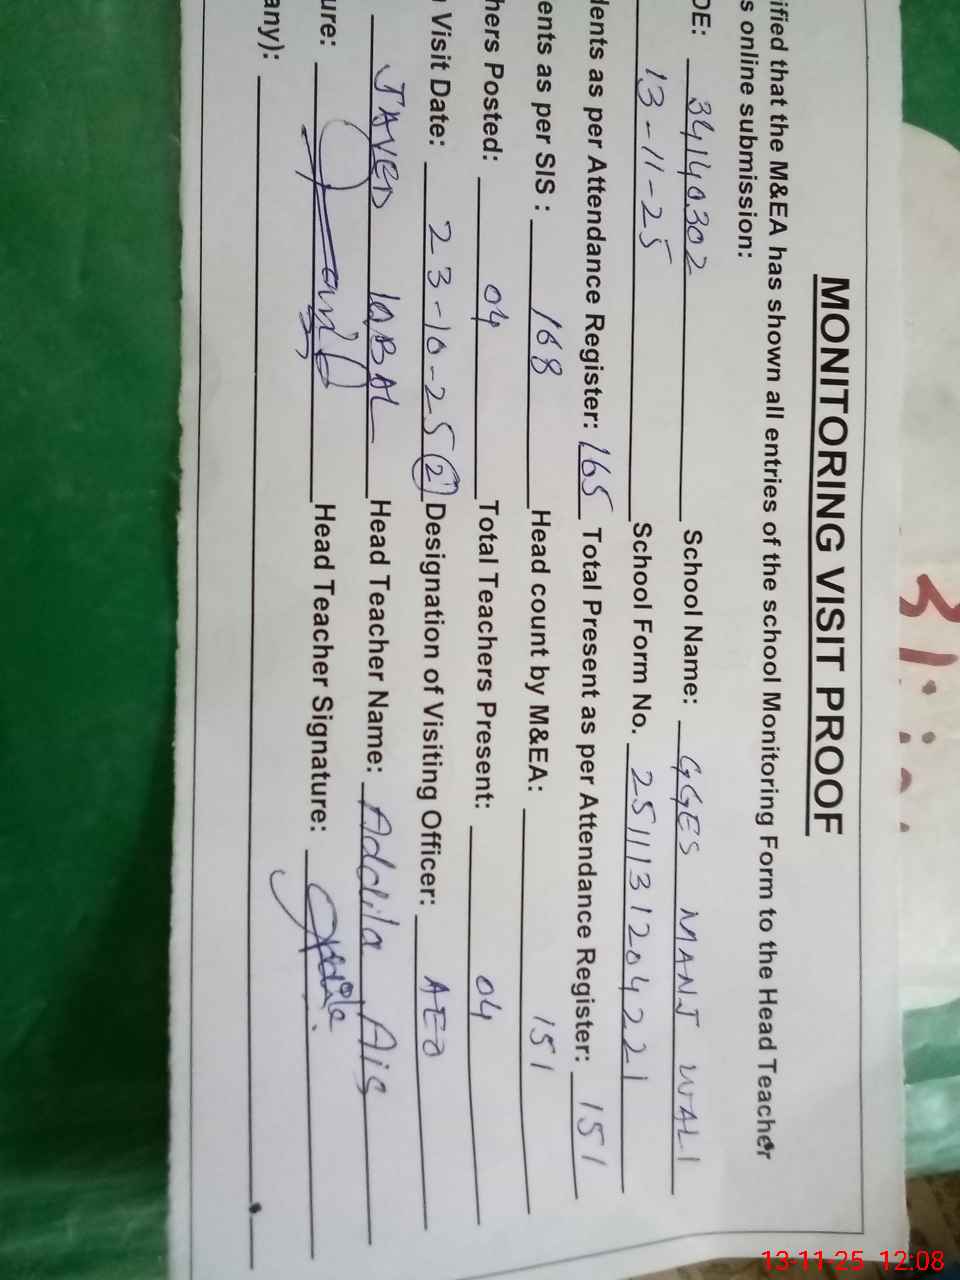 MONITORING VISIT PROOF
ified that the M&EA has shown all entries of the school Monitoring Form to the Head Teacher
s online submission:
DE: 34140302 School Name: GGES MANJ WALI
13-11-25 School Form No. 2511131204221
dents as per Attendance Register: 165 Total Present as per Attendance Register: 151
ents as per SIS : 168 Head count by M&EA: 151
hers Posted: 04 Total Teachers Present: 04
n Visit Date: 23-10-25 (2) Designation of Visiting Officer: AEO
JAVED IQBAL Head Teacher Name: Addila Ais
ure: Head Teacher Signature:
any):
13-11-25 12:08